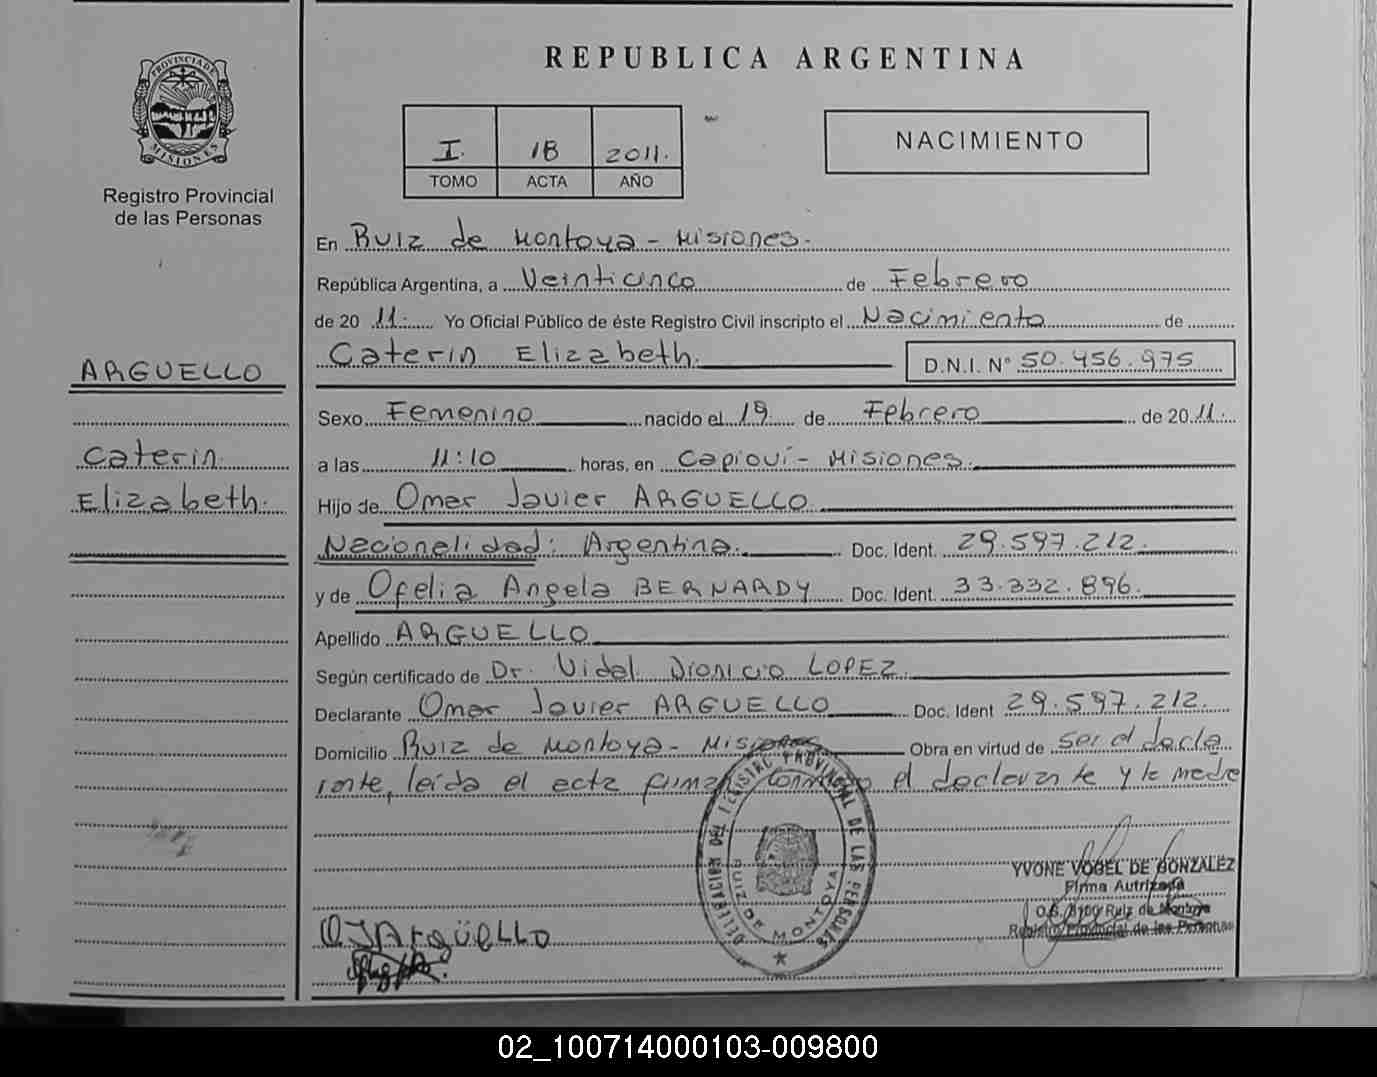 REPUBLICA ARGENTINA
PROVINCIA DE
MISIONES
Registro Provincial
de las Personas
I. 18 2011.
TOMO ACTA AÑO
NACIMIENTO
En Ruiz de Montoya - Misiones.
República Argentina, a Veinticinco de Febrero
de 20 11. Yo Oficial Público de éste Registro Civil inscripto el Nacimiento de
Caterin Elizabeth. D.N.I. N° 50.456.975
ARGUELLO
Caterin
Elizabeth.
Sexo Femenino nacido el 19 de Febrero de 20 11.
a las 11:10 horas, en Capioví - Misiones.
Hijo de Omar Javier ARGUELLO
Nacionalidad: Argentina. Doc. Ident. 29.597.212.
y de Ofelia Angela BERNARDY Doc. Ident. 33.332.896.
Apellido ARGUELLO
Según certificado de Dr. Vidal Dionicio LOPEZ.
Declarante Omar Javier ARGUELLO Doc. Ident 29.597.212.
Domicilio Ruiz de Montoya - Misiones Obra en virtud de ser el decla
rante, leída el acta firman conmigo el declarante y la madre
DELEGACION DEL REGISTRO PROVINCIAL DE LAS PERSONAS
RUIZ DE MONTOYA
YVONE VOGEL DE GONZALEZ
Firma Autrizada
O.S. 8100 Ruiz de Montoya
Registro Provincial de las Personas
OJArgüello
02_100714000103-009800